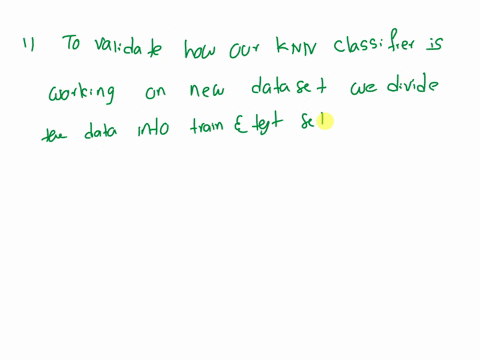 1) To validate how our KNN classifier is
working on new dataset we divide
the data into train & test set